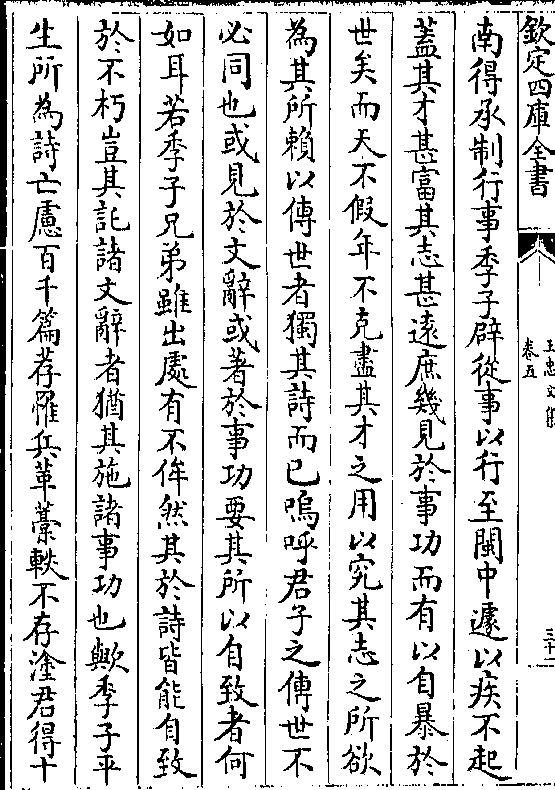 欽定四庫全書
王忠文集
卷五
三十一
南得承制行事季子辟從事以行至閩中遽以疾不起
蓋其才甚富其志甚遠庶幾見於事功而有以自暴於
世矣而天不假年不克盡其才之用以究其志之所欲
為其所賴以傳世者獨其詩而已嗚呼君子之傳世不
必同也或見於文辭或著於事功要其所以自致者何
如耳若季子兄弟雖出處有不侔然其於詩皆能自致
於不朽豈其託諸文辭者猶其施諸事功也歟季子平
生所為詩亡慮百千篇荐罹兵革藁軼不存塗君得十